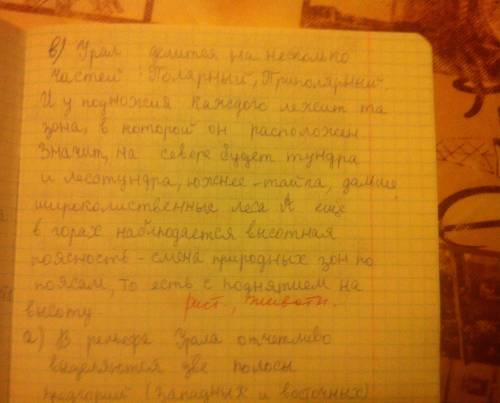 в) Урал делится на несколко
частей: Полярный, Приполярный.
И у подножия каждого лежит та
зона, в которой он расположен
Значит, на севере будет тундра
и лесотундра, южнее - тайга, дальше
широколиственные леса А еще
в горах наблюдается высотная
поясность - смена природных зон по
поясам, то есть с поднятием на
высоту. раст., животн.
г) В рельефе Урала отчетливо
выделяются две полосы
предгорий (западных и восточных)